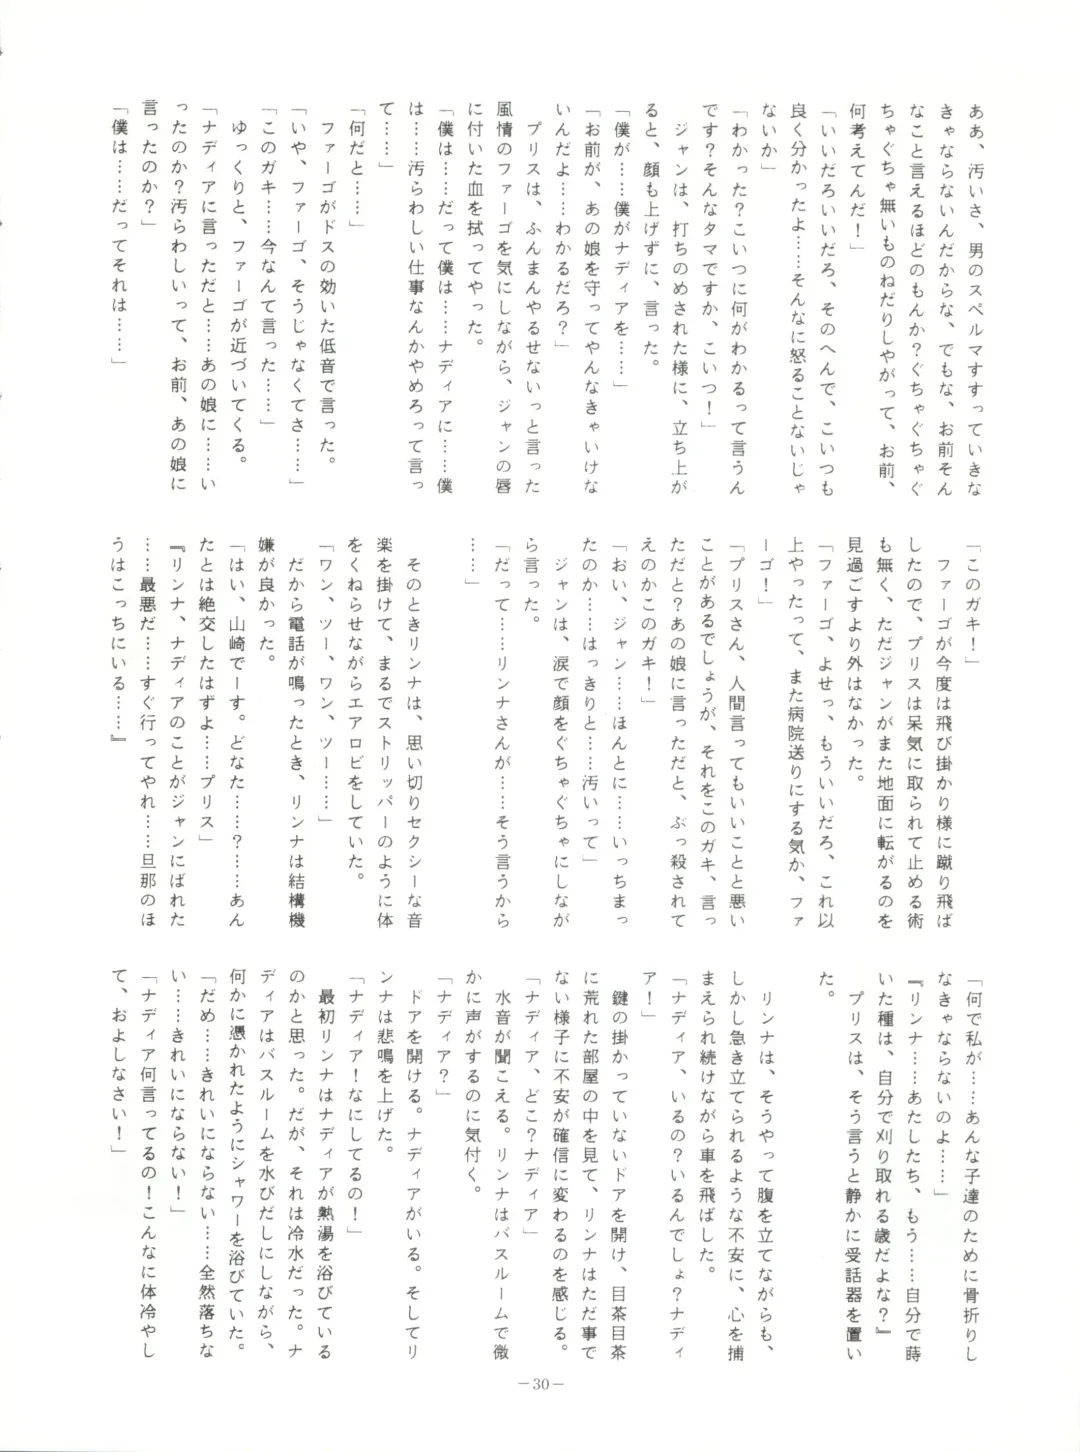 ああ、汚いさ、男のスペルマすすっていきな
きゃならないんだからな、でもな、お前そん
なこと言えるほどのもんか？ぐちゃぐちゃぐ
ちゃぐちゃ無いものねだりしやがって、お前、
何考えてんだ！」
「いいだろいいだろ、そのへんで、こいつも
良く分かったよ……そんなに怒ることないじゃ
ないか」
「わかった？こいつに何がわかるって言うん
です？そんなタマですか、こいつ！」
ジャンは、打ちのめされた様に、立ち上が
ると、顔も上げずに、言った。
「僕が……僕がナディアを……」
「お前が、あの娘を守ってやんなきゃいけな
いんだよ……わかるだろ？」
プリスは、ふんまんやるせないっと言った
風情のファーゴを気にしながら、ジャンの唇
に付いた血を拭ってやった。
「僕は……だって僕は……ナディアに……僕
は……汚らわしい仕事なんかやめろって言っ
て……」
「何だと……」
ファーゴがドスの効いた低音で言った。
「いや、ファーゴ、そうじゃなくてさ……」
「このガキ……今なんて言った……」
ゆっくりと、ファーゴが近づいてくる。
「ナディアに言っただと……あの娘に……い
ったのか？汚らわしいって、お前、あの娘に
言ったのか？」
「僕は……だってそれは……」
「このガキ！」
ファーゴが今度は飛び掛かり様に蹴り飛ば
したので、プリスは呆気に取られて止める術
も無く、ただジャンがまた地面に転がるのを
見過ごすより外はなかった。
「ファーゴ、よせっ、もういいだろ、これ以
上やったって、また病院送りにする気か、ファ
ーゴ！」
「プリスさん、人間言ってもいいことと悪い
ことがあるでしょうが、それをこのガキ、言っ
ただと？あの娘に言っただと、ぶっ殺されて
えのかこのガキ！」
「おい、ジャン……ほんとに……いっちまっ
たのか……はっきりと……汚いって」
ジャンは、涙で顔をぐちゃぐちゃにしなが
ら言った。
「だって……リンナさんが……そう言うから
……」
そのときリンナは、思い切りセクシーな音
楽を掛けて、まるでストリッパーのように体
をくねらせながらエアロビをしていた。
「ワン、ツー、ワン、ツー……」
だから電話が鳴ったとき、リンナは結構機
嫌が良かった。
「はい、山崎でーす。どなた……？……あん
たとは絶交したはずよ……プリス」
『リンナ、ナディアのことがジャンにばれた
……最悪だ……すぐ行ってやれ……旦那のほ
うはこっちにいる……』
「何で私が……あんな子達のために骨折りし
なきゃならないのよ……」
『リンナ…あたしたち、もう……自分で蒔
いた種は、自分で刈り取れる歳だよな？』
プリスは、そう言うと静かに受話器を置い
た。
リンナは、そうやって腹を立てながらも、
しかし急き立てられるような不安に、心を捕
まえられ続けながら車を飛ばした。
「ナディア、いるの？いるんでしょ？ナディ
ア！」
鍵の掛かっていないドアを開け、目茶目茶
に荒れた部屋の中を見て、リンナはただ事で
ない様子に不安が確信に変わるのを感じる。
「ナディア、どこ？ナディア」
水音が聞こえる。リンナはバスルームで微
かに声がするのに気付く。
「ナディア？」
ドアを開ける。ナディアがいる。そしてリ
ンナは悲鳴を上げた。
「ナディア！なにしてるの！」
最初リンナはナディアが熱湯を浴びている
のかと思った。だが、それは冷水だった。ナ
ディアはバスルームを水びだしにしながら、
何かに憑かれたようにシャワーを浴びていた。
「だめ……きれいにならない……全然落ちな
い……きれいにならない！」
「ナディア何言ってるの！こんなに体冷やし
て、およしなさい！」
－30－